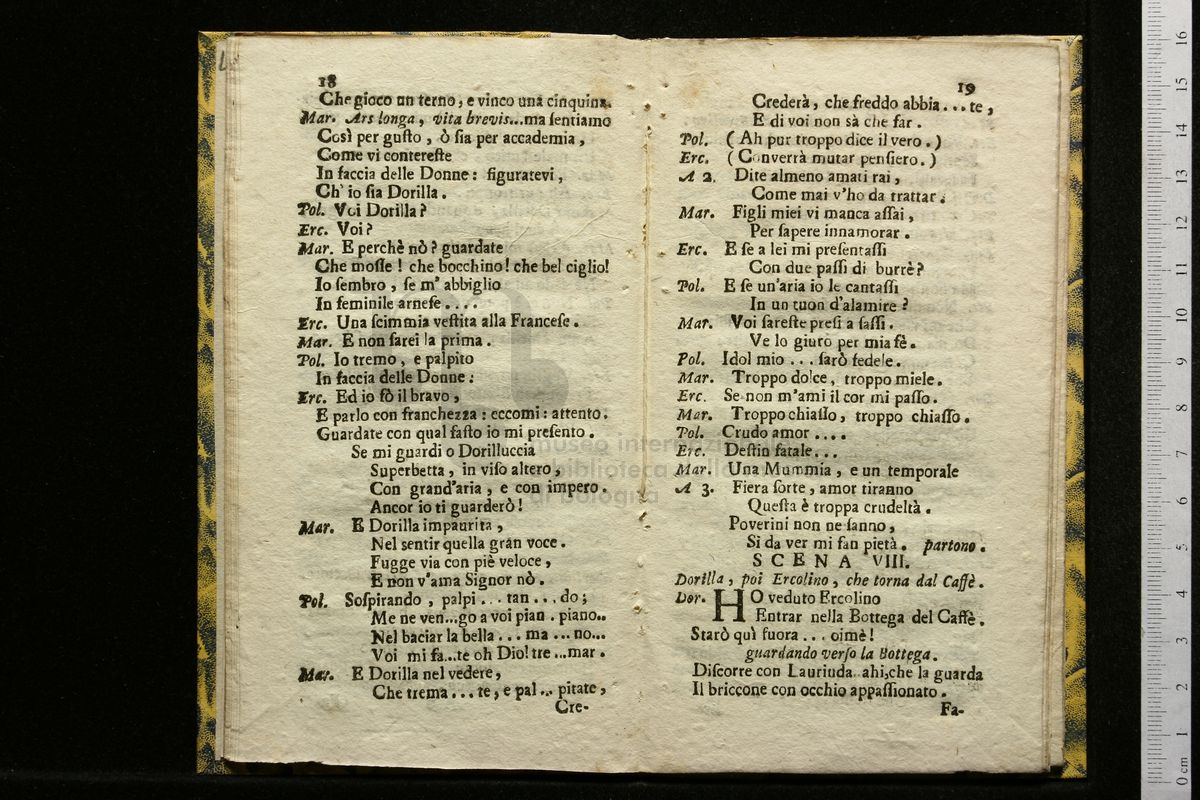 18
Che gioco un terno, e vinco una cinquina.
Mar. Ars longa, vita brevis...ma ſentiamo
Così per guſto, ò ſia per accademia,
Come vi contereſte
In faccia delle Donne: figuratevi,
Ch' io ſia Dorilla.
Pol. Voi Dorilla?
Erc. Voi?
Mar. E perchè nò? guardate
Che moſſe! che bocchino! che bel ciglio!
Io ſembro, ſe m' abbiglio
In feminile arneſe....
Erc. Una ſcimmia veſtita alla Franceſe.
Mar. E non ſarei la prima.
Pol. Io tremo, e palpito
In faccia delle Donne:
Erc. Ed io fò il bravo,
E parlo con franchezza: eccomi: attento.
Guardate con qual faſto io mi preſento.
Se mi guardi o Dorilluccia
Superbetta, in viſo altero,
Con grand'aria, e con impero.
Ancor io ti guarderò!
Mar. E Dorilla impaurita,
Nel ſentir quella gran voce.
Fugge via con piè veloce,
E non v'ama Signor nò.
Pol. Soſpirando, palpi... tan... do;
Me ne ven...go a voi pian. piano..
Nel baciar la bella... ma... no...
Voi mi fa...te oh Dio! tre...mar.
Mar. E Dorilla nel vedere,
Che trema...te, e pal... pitate,
Cre-
19
Crederà, che freddo abbia...te,
E di voi non sà che far.
Pol. (Ah pur troppo dice il vero.)
Erc. (Converrà mutar penſiero.)
A 2. Dite almeno amati rai,
Come mai v'ho da trattar.
Mar. Figli miei vi manca aſſai,
Per ſapere innamorar.
Erc. E ſe a lei mi preſentaſſi
Con due paſſi di burrè?
Pol. E ſe un'aria io le cantaſſi
In un tuon d'alamire?
Mar. Voi ſareſte preſi a ſaſſi.
Ve lo giuro per mia fè.
Pol. Idol mio... ſarò fedele.
Mar. Troppo dolce, troppo miele.
Erc. Se non m'ami il cor mi paſſo.
Mar. Troppo chiaſſo, troppo chiaſſo.
Pol. Crudo amor....
Erc. Deſtin fatale...
Mar. Una Mummia, e un temporale
A 3. Fiera ſorte, amor tiranno
Queſta è troppa crudeltà.
Poverini non ne ſanno,
Si da ver mi fan pietà. partono.
SCENA VIII.
Dorilla, poi Ercolino, che torna dal Caffè.
Dor. HO veduto Ercolino
Entrar nella Bottega del Caffè.
Starò quì fuora... oimè!
guardando verſo la Bottega.
Diſcorre con Lauriuda.. ahi, che la guarda
Il briccone con occhio appaſſionato.
Fa-
museo internazionale
biblioteca della
di bologna
0 cm 1 2 3 4 5 6 7 8 9 10 11 12 13 14 15 16